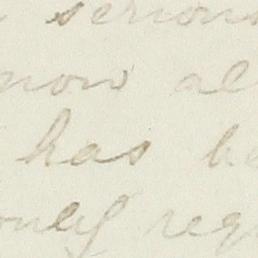 serious
now al
has be
only req